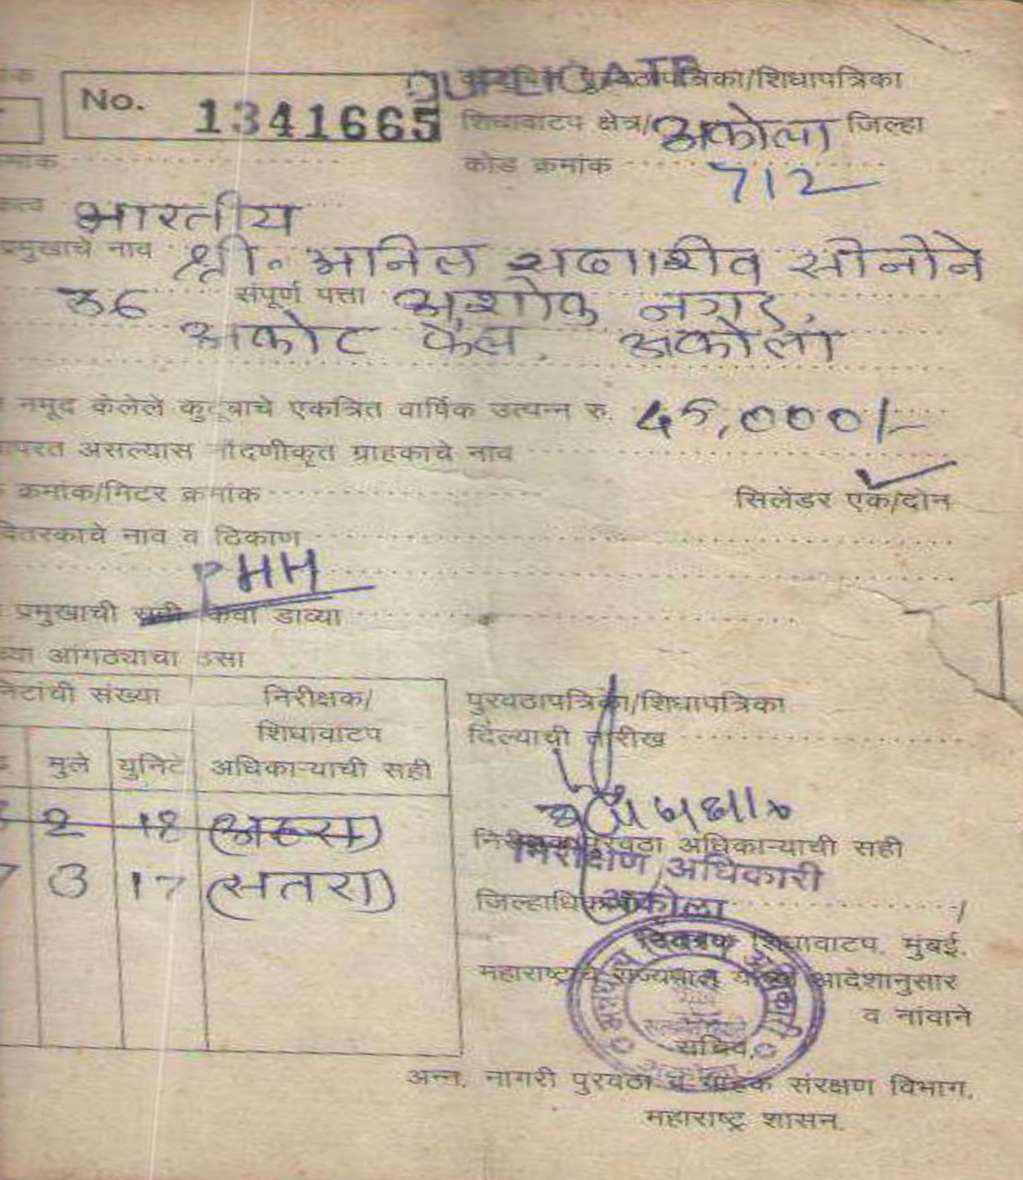 DUPLICATE
पुरवठापत्रिका/शिधापत्रिका
No. 1341665
शिधावाटप क्षेत्र/अकोला जिल्हा
कोड क्रमांक 712
भारतीय
प्रमुखाचे नाव श्री. अनिल सदाशीव सोनोने
36 संपूर्ण पत्ता अशोक नगर,
अकोट फैल, अकोला
नमूद केलेले कुटूंबाचे एकत्रित वार्षिक उत्पन्न रु. 45,000/-
वापरत असल्यास नोंदणीकृत ग्राहकाचे नाव
क्रमांक/मिटर क्रमांक
सिलेंडर एक/दोन
वितरकाचे नाव व ठिकाण
PHH
प्रमुखाची सही किंवा डाव्या
आंगठ्याचा ठसा
संख्या
निरीक्षक/
शिधावाटप
अधिकाऱ्याची सही
मुले युनिट
2 18 (अठरा)
7 3 17 (सतरा)
पुरवठापत्रिका/शिधापत्रिका
दिल्याची तारीख
निरीक्षक/पुरवठा अधिकाऱ्याची सही
निरीक्षण अधिकारी
अकोला
शिधावाटप, मुंबई.
महाराष्ट्राचे राज्यपाल यांच्या आदेशानुसार
व नांवाने
सचिव,
अन्न, नागरी पुरवठा व ग्राहक संरक्षण विभाग,
महाराष्ट्र शासन.